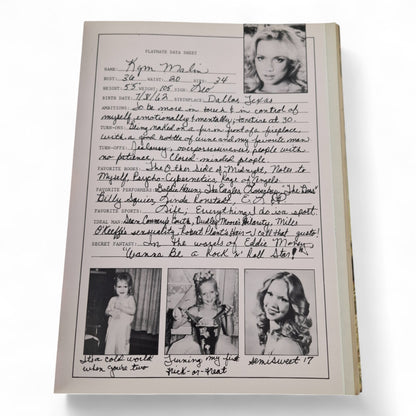 PLAYMATE DATA SHEET
NAME: Kym Malin
BUST: 36 WAIST: 20 HIPS: 34
HEIGHT: 5'5" WEIGHT: 105 SIGN: Leo
BIRTH DATE: 7/8/62 BIRTHPLACE: Dallas, Texas
AMBITIONS: To be more in touch & in control of
myself, emotionally & mentally, to retire at 30
TURN-ONS: Being naked on a fur in front of a fireplace
with a good bottle of wine and my favorite man
TURN-OFFS: Jealousy, overpossessiveness, people with
no patience, closed minded people
FAVORITE BOOKS: The Other Side of Midnight, Notes to
Myself, Psycho-Cybernetics, Rage of Angels
FAVORITE PERFORMERS: Goldie Hawn, The Eagles, "The Boss"
Billy Squier, Linda Ronstadt, E.L.O.
FAVORITE SPORTS: Life, Everything I do is a sport.
IDEAL MAN: Sean Connery's Couth, Dudley Moore's Hilarity, Miles
O'Keeffe's sensuality, Robert Plant's Hair - I call that gusto!
SECRET FANTASY: In the words of Eddie Money
"Wanna Be a Rock 'n' Roll Star"
It's a cold world
when you're two
Turning my first
Trick-or-Treat
Semi Sweet 17